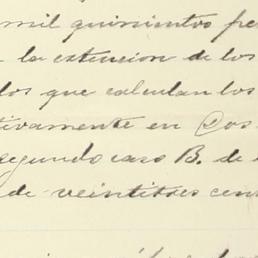 mil quinientos pe
la extencion de los
los que calculan los
tivamente en Dos
segundo caso B. de
de veintitres cent